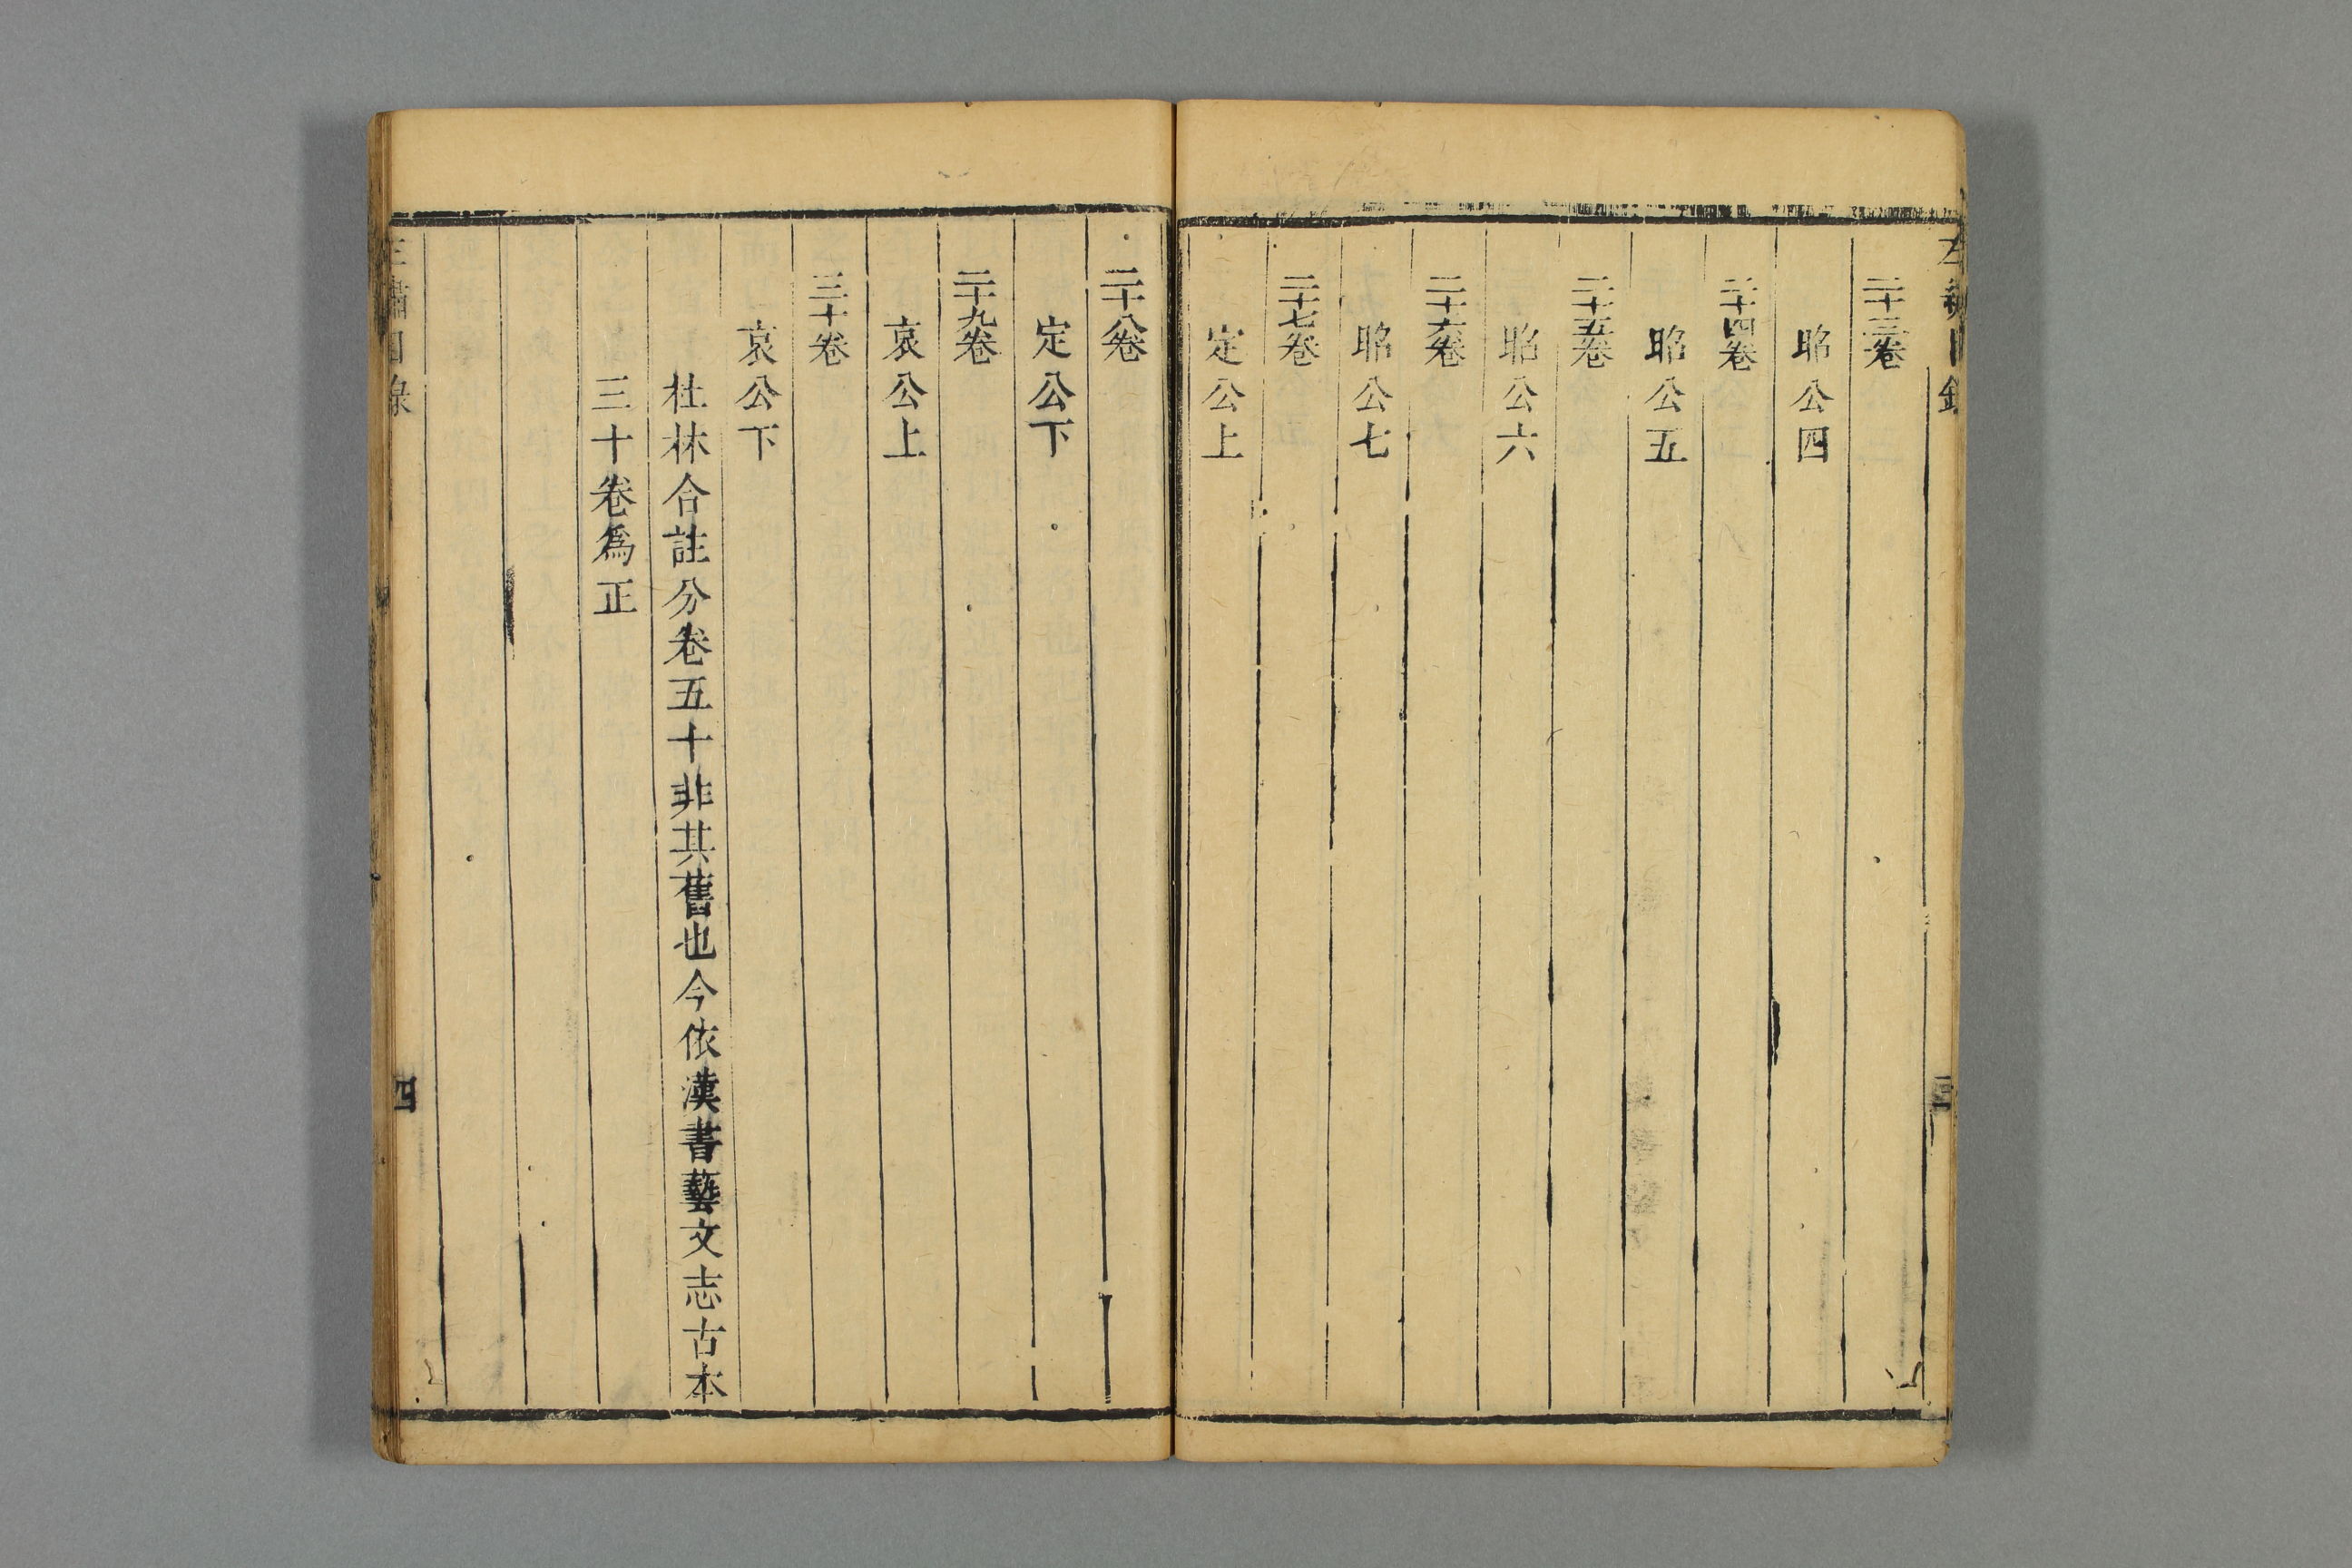 二十三卷
昭公四
二十四卷
昭公五
二十五卷
昭公六
二十六卷
昭公七
二十七卷
定公上
二十八卷
定公下
二十九卷
哀公上
三十卷
哀公下
杜林合註分卷五十非其舊也今依漢書藝文志古本
三十卷爲正
四